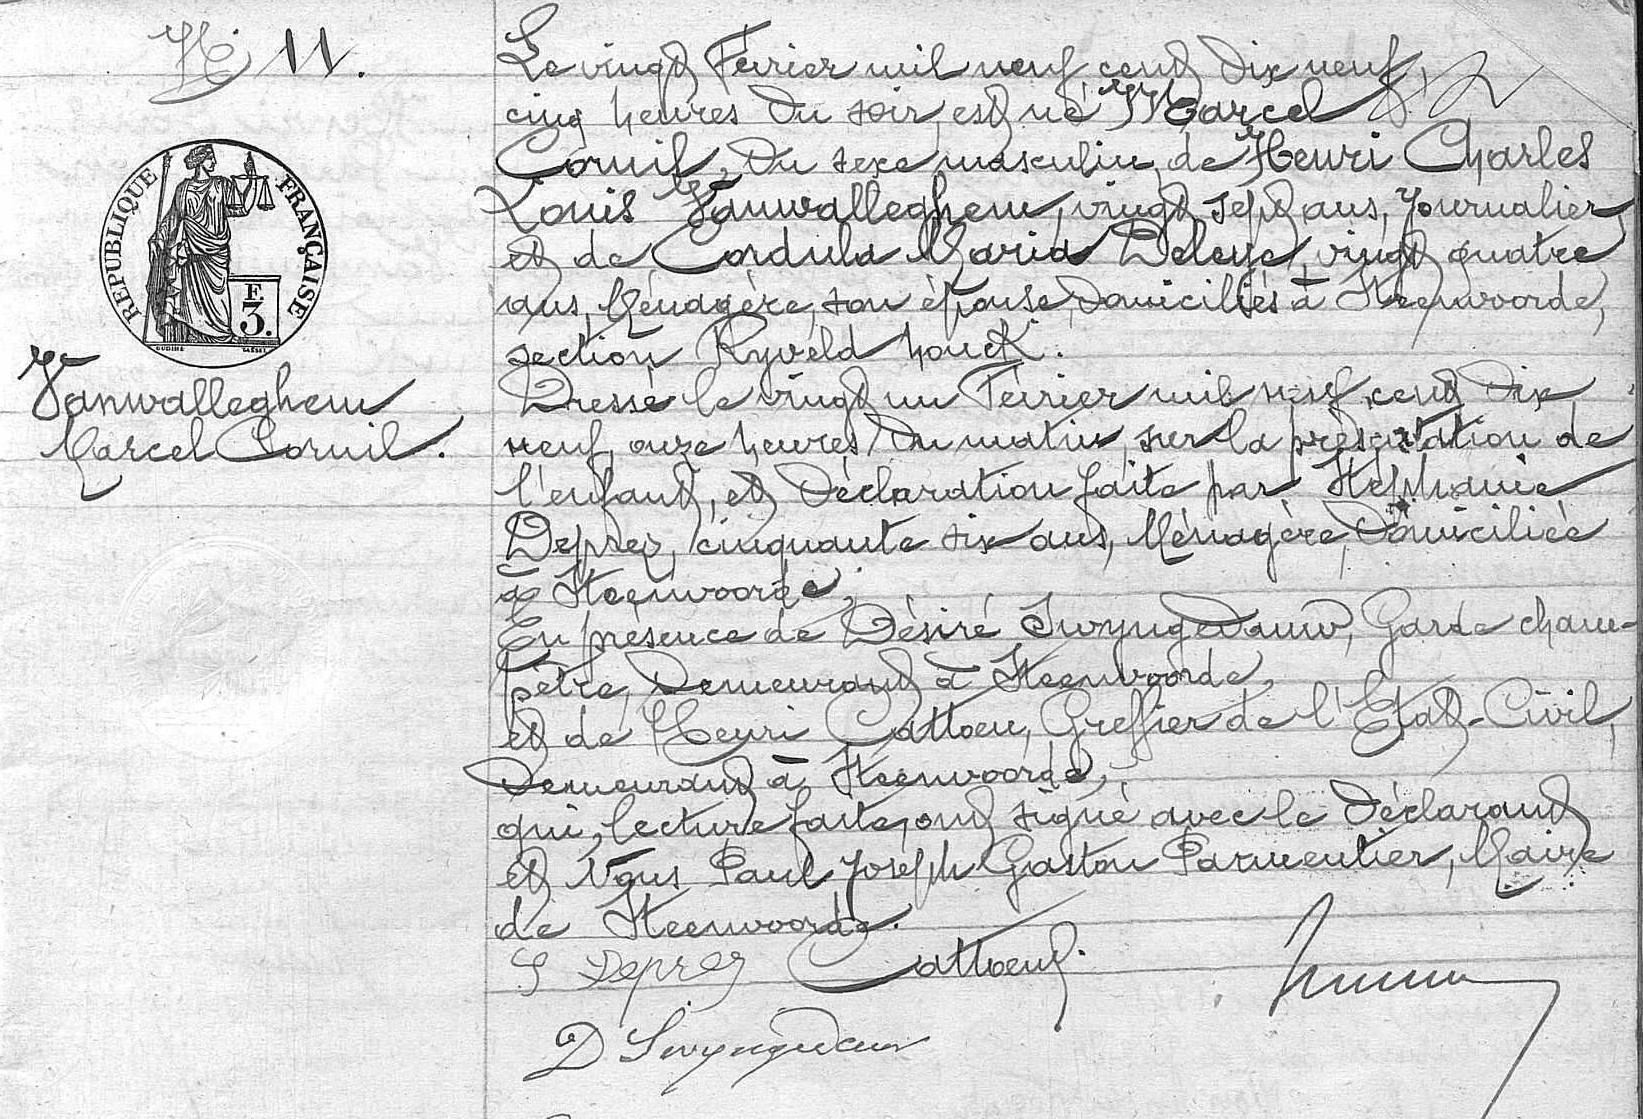 N° 11.
RÉPUBLIQUE FRANÇAISE
F
3.
OUDINÉ
Vanwalleghem
Marcel Cornil.
Le vingt Février mil neuf cent dix neuf,
cinq heures du soir, est né Marcel
Cornil, du sexe masculin, de Henri Charles
Louis Vanwalleghem, vingt sept ans, Journalier
et de Cordula Maria Deleye, vingt quatre
ans, Ménagère, son épouse, domiciliés à Steenvoorde,
section Ryveld houck.
Dressé le vingt un Février mil neuf cent dix
neuf, onze heures du matin, sur la présentation de
l'enfant, et déclaration faite par Stéphanie
Deprez, cinquante six ans, Ménagère, domiciliée
à Steenvoorde,
En présence de Désiré Swyngedauw, Garde cham-
pêtre, demeurant à Steenvoorde,
et de Henri Cattoen, Greffier de l'Etat-Civil,
demeurant à Steenvoorde,
qui, lecture faite, ont signé avec le déclarant
et Nous Paul Joseph Gaston Parmentier, Maire
de Steenvoorde.
S Deprez Cattoen.
D Swyngedauw